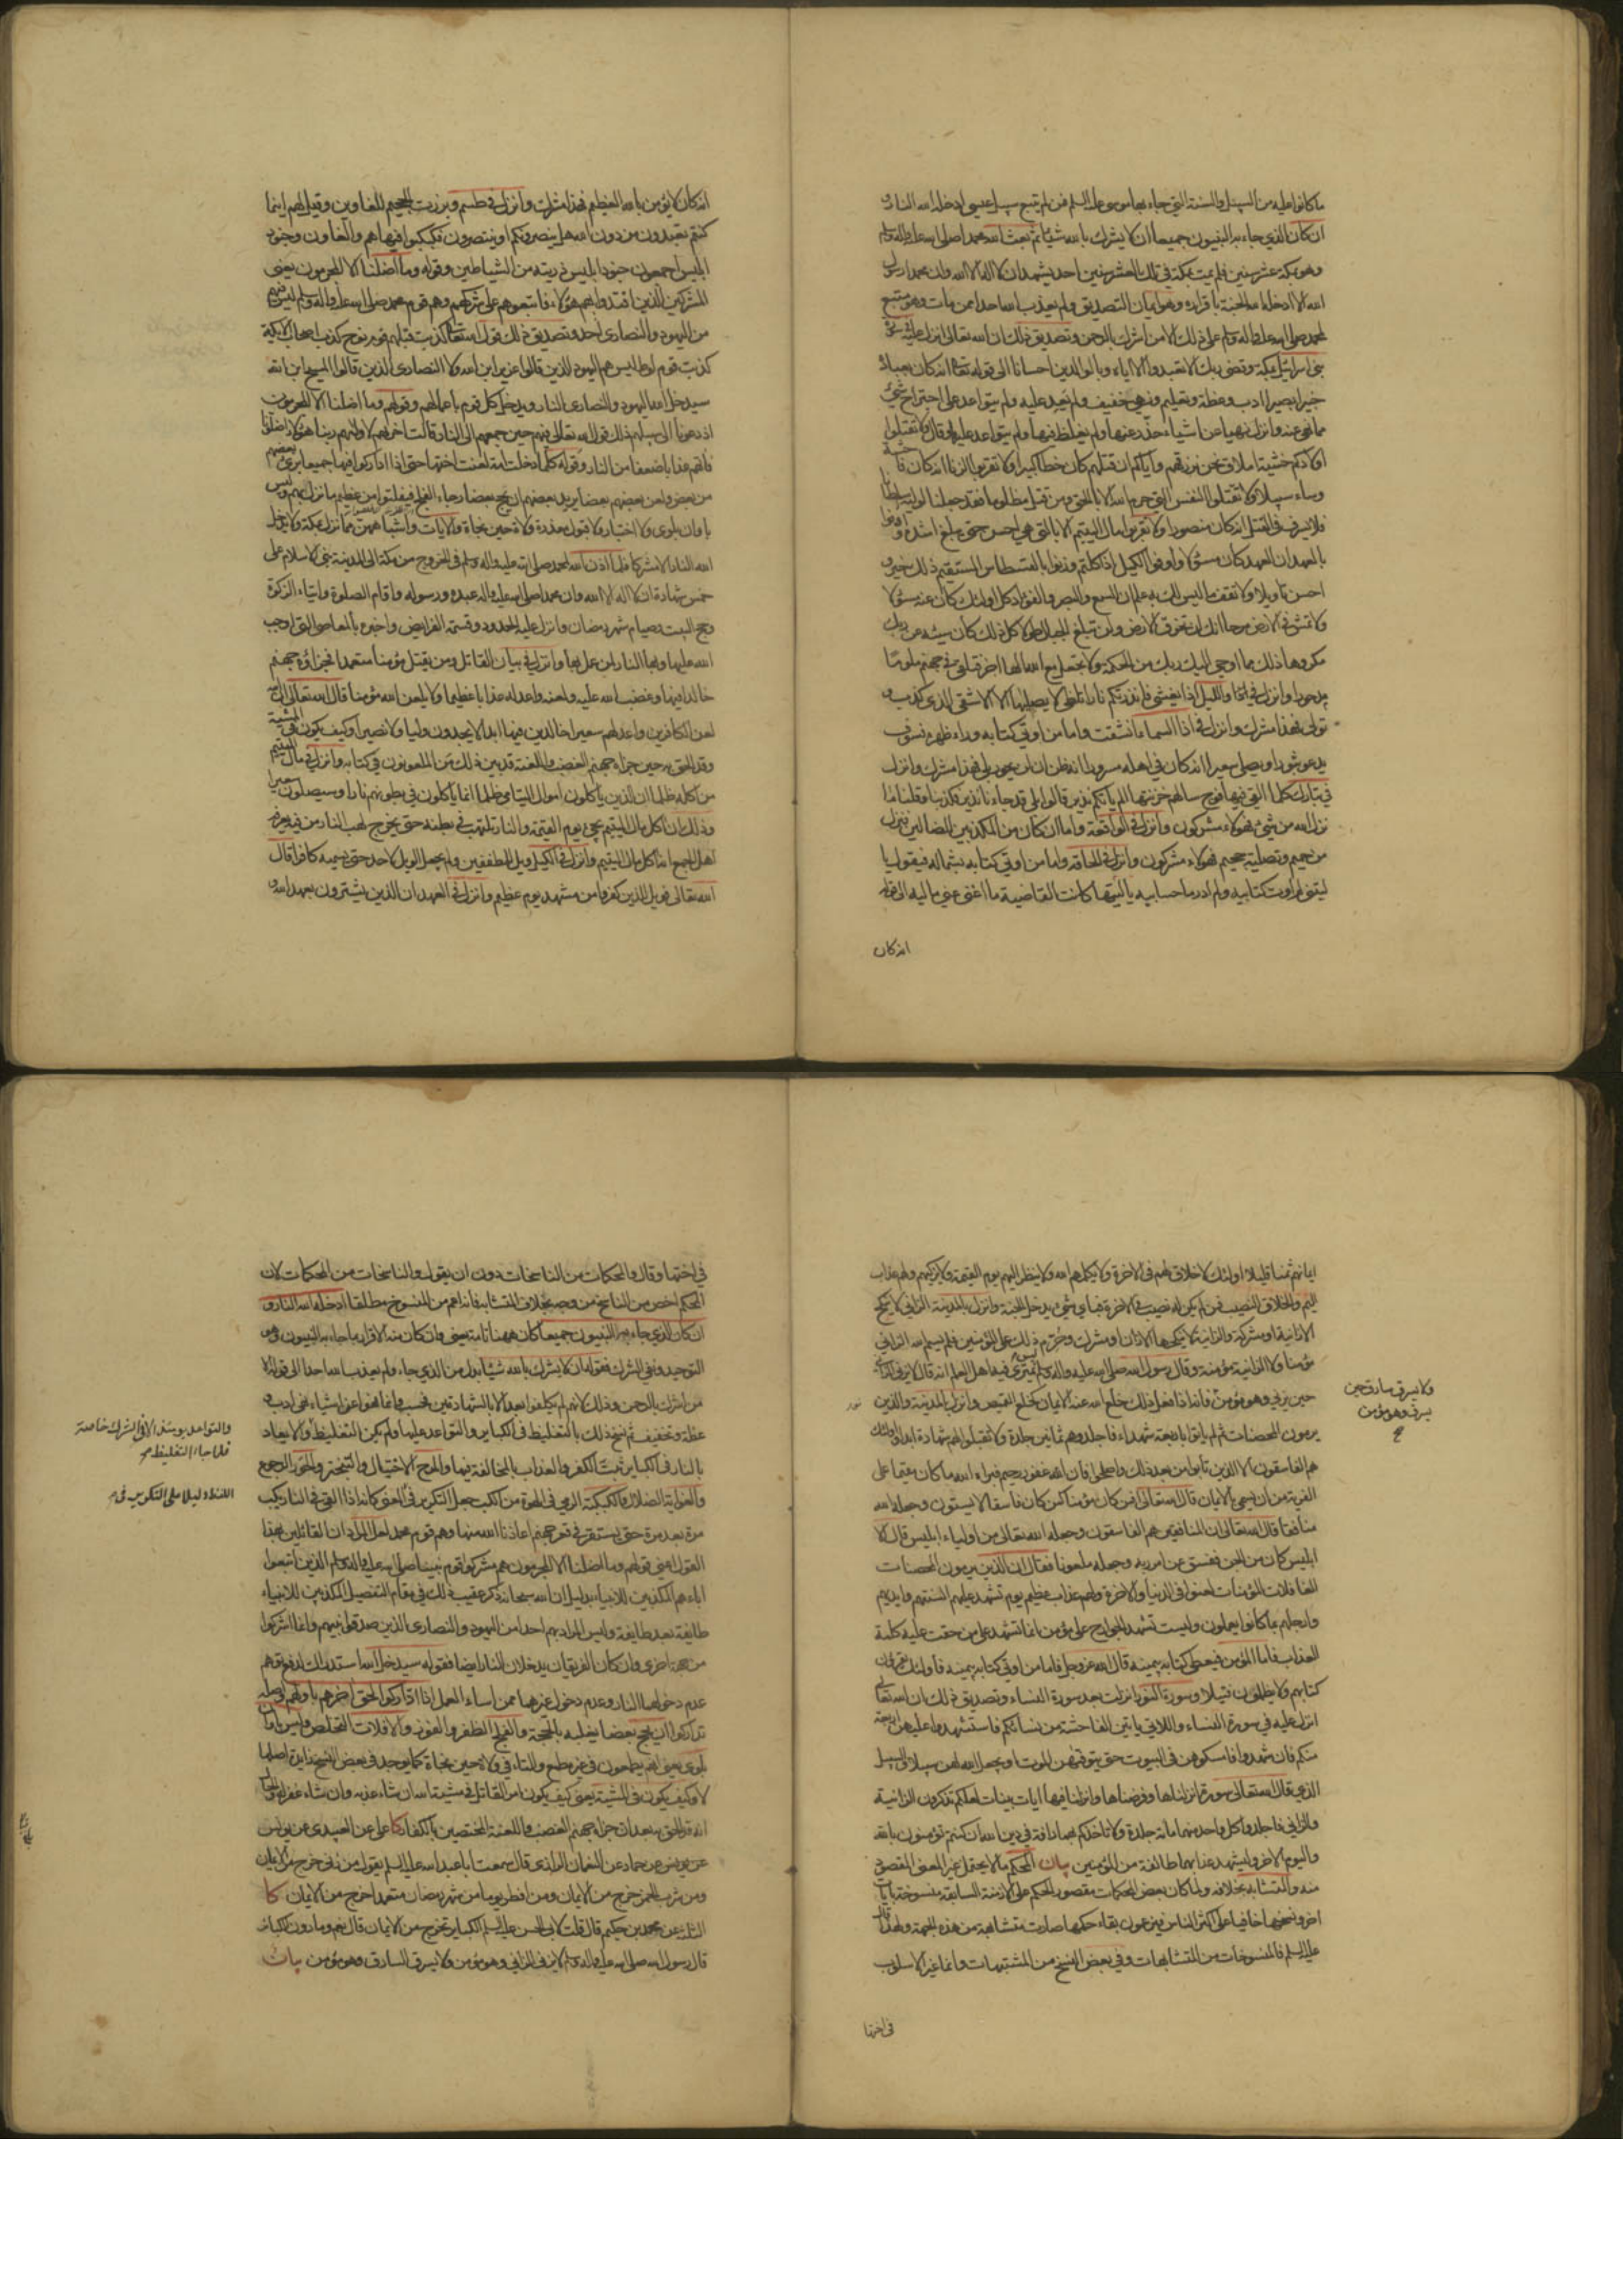 ما كانوا عليه من السبيل والسنة التي جاء بها موسى عليه السلم فمن لم يتبع سبيل عيسى ادخله الله النار و
ان كان الذي جاء به النبيون جميعا ان لا يشرك بالله شيئا ثم بعث الله محمدا صلى الله عليه واله وسلم
وهو بمكة عشر سنين فلم يمت بمكة في تلك العشر سنين احد يشهد ان لا اله الا الله وان محمدا رسول
الله الا ادخله الله الجنة باقراره وهو ايمان التصديق ولم يعذب الله احدا ممن مات وهو متبع
لمحمد صلى الله عليه واله وسلم على ذلك الا من اشرك بالرحمن وتصديق ذلك ان الله تعالى انزل عليه في سورة
بني اسرائيل بمكة وقضى ربك الا تعبدوا الا اياه وبالوالدين احسانا الى قوله تعالى انه كان بعباده
خبيرا بصيرا ادب وعظة وتعليم ونهي خفيف ولم يعد عليه ولم يتواعد على اجتراح شيء
مما نهى عنه وانزل نهيا عن اشياء حذر عنها ولم يغلظ فيها ولم يتواعد عليها وقال ولا تقتلوا
اولادكم خشية املاق نحن نرزقهم واياكم ان قتلهم كان خطأ كبيرا ولا تقربوا الزنا انه كان فاحشة
وساء سبيلا ولا تقتلوا النفس التي حرم الله الا بالحق ومن قتل مظلوما فقد جعلنا لوليه سلطانا
فلا يسرف في القتل انه كان منصورا ولا تقربوا مال اليتيم الا بالتي هي احسن حتى يبلغ اشده واوفوا
بالعهد ان العهد كان مسئولا واوفوا الكيل اذا كلتم وزنوا بالقسطاس المستقيم ذلك خير و
احسن تأويلا ولا تقف ما ليس لك به علم ان السمع والبصر والفؤاد كل اولئك كان عنه مسئولا
ولا تمش في الارض مرحا انك لن تخرق الارض ولن تبلغ الجبال طولا كل ذلك كان سيئه عند ربك
مكروها ذلك مما اوحى اليك ربك من الحكمة ولا تجعل مع الله الها اخر فتلقى في جهنم ملوما
مدحورا وانزل في والليل اذا يغشى فانذرتكم نارا تلظى لا يصليها الا الاشقى الذي كذب و
تولى فهذا مشرك وانزل في اذا السماء انشقت واما من اوتي كتابه وراء ظهره فسوف
يدعو ثبورا ويصلى سعيرا انه كان في اهله مسرورا انه ظن ان لن يحور بلى فهذا مشرك وانزل
في تبارك كلما القي فيها فوج سالهم خزنتها الم يأتكم نذير قالوا بلى قد جاءنا نذير فكذبنا وقلنا ما
نزل الله من شيء فهؤلاء مشركون وانزل في الواقعة واما ان كان من المكذبين الضالين فنزل
من حميم وتصلية جحيم فهؤلاء مشركون وانزل في الحاقة واما من اوتي كتابه بشماله فيقول يا
ليتني لم اوت كتابيه ولم ادر ما حسابيه يا ليتها كانت القاضية ما اغنى عني ماليه الى قوله
انه كان
انه كان لا يؤمن بالله العظيم فهذا مشرك وانزل في طسم وبرزت الجحيم للغاوين وقيل لهم اينما
كنتم تعبدون من دون الله هل ينصرونكم او ينتصرون فكبكبوا فيها هم والغاون وجنود
ابليس اجمعون جنود ابليس ذريته من الشياطين وقوله وما اضلنا الا المجرمون يعني
المشركين الذين اقتدوا بهم هؤلاء فاتبعوهم على شركهم وهم قوم محمد صلى الله عليه واله وسلم ليس فيهم
من اليهود والنصارى احد وتصديق ذلك قول الله تعالى كذبت قبلهم قوم نوح كذب اصحاب الايكة
كذبت قوم لوط ليس هم اليهود الذين قالوا عزير ابن الله ولا النصارى الذين قالوا المسيح ابن الله
سيدخل الله اليهود والنصارى النار ويدخل كل قوم باعمالهم وقولهم وما اضلنا الا المجرمون
اذ دعونا الى سبيلهم ذلك قول الله تعالى فيهم حين جمعهم الى النار قالت اخراهم لاوليهم ربنا هؤلاء اضلونا
فاتهم عذابا ضعفا من النار وقوله كلما دخلت امة لعنت اختها حتى اذا اداركوا فيها جميعا برئ بعضهم
من بعض ولعن بعضهم بعضا يريد بعضهم ان يحج بعضا رجاء الفلج فيفلتوا من عظيم ما نزل بهم وليس
باوان بلوى ولا اختبار ولا قبول معذرة ولات حين نجاة والايات واشباههن مما نزل بمكة ولا يدخل
الله النار الا مشركا فلما اذن الله لمحمد صلى الله عليه واله وسلم في الخروج من مكة الى المدينة بنى الاسلام على
خمس شهادة ان لا اله الا الله وان محمدا صلى الله عليه واله عبده ورسوله واقام الصلوة وايتاء الزكوة
وحج البيت وصيام شهر رمضان وانزل عليه الحدود وقسمة الفرايض واخبره بالمعاصي التي اوجب
الله عليها وبها النار لمن عمل بها وانزل في بيان القاتل ومن يقتل مؤمنا متعمدا فجزاؤه جهنم
خالدا فيها وغضب الله عليه ولعنه واعد له عذابا عظيما ولا يلعن الله مؤمنا قال الله تعالى ان الله
لعن الكافرين واعد لهم سعيرا خالدين فيها ابدا لا يجدون وليا ولا نصيرا وكيف يكون في المشية
وقد الحق به حين جزاه جهنم الغضب واللعنة قد بين ذلك من الملعونون في كتابه وانزل في مال اليتيم
من اكله ظلما ان الذين يأكلون اموال اليتامى ظلما انما يأكلون في بطونهم نارا وسيصلون سعيرا
وذلك ان آكل مال اليتيم يجيء يوم القيمة والنار تلتهب في بطنه حتى يخرج لهب النار من فيه يعرفه
اهل الجمع انه آكل مال اليتيم وانزل في الكيل ويل للمطففين ولم يجعل الويل لاحد حتى يسميه كافرا قال
الله تعالى فويل للذين كفروا من مشهد يوم عظيم وانزل في العهد ان الذين يشترون بعهد الله و
ايمانهم ثمنا قليلا اولئك لا خلاق لهم في الاخرة ولا يكلمهم الله ولا ينظر اليهم يوم القيمة ولا يزكيهم ولهم عذاب
اليم والخلاق النصيب فمن لم يكن له نصيب في الاخرة فباي شيء يدخل الجنة وانزل بالمدينة الزاني لا ينكح
الا زانية او مشركة والزانية لا ينكحها الا زان او مشرك وحرم ذلك على المؤمنين فلم يسم الله الزاني
مؤمنا ولا الزانية مؤمنة وقال رسول الله صلى الله عليه واله وسلم ليس يمتري فيه اهل العلم انه قال لا يزني الزاني
حين يزني وهو مؤمن فانه اذا فعل ذلك خلع الله عنه الايمان كخلع القميص وانزل بالمدينة والذين
ولا يسرق سارق حين
يسرق وهو مؤمن
يرمون المحصنات ثم لم يأتوا باربعة شهداء فاجلدوهم ثمانين جلدة ولا تقبلوا لهم شهادة ابدا واولئك
هم الفاسقون الا الذين تابوا من بعد ذلك واصلحوا فان الله غفور رحيم فبراه الله ما كان مقيما على
الفرية من ان يسمى بالايمان قال الله تعالى افمن كان مؤمنا كمن كان فاسقا لا يستون وجعله الله
منافقا قال الله تعالى ان المنافقين هم الفاسقون وجعله الله تعالى من اولياء ابليس قال الا
ابليس كان من الجن ففسق عن امر ربه وجعله ملعونا فقال ان الذين يرمون المحصنات
الغافلات المؤمنات لعنوا في الدنيا والاخرة ولهم عذاب عظيم يوم تشهد عليهم السنتهم وايديهم
وارجلهم بما كانوا يعملون وليست تشهد الجوارح على مؤمن انما تشهد على من حقت عليه كلمة
العذاب فاما المؤمن فيعطى كتابه بيمينه قال الله عز وجل فاما من اوتي كتابه بيمينه فاولئك يقرؤن
كتابهم ولا يظلمون فتيلا وسورة النور انزلت بعد سورة النساء وتصديق ذلك ان الله تعالى
انزل عليه في سورة النساء واللاتي ياتين الفاحشة من نسائكم فاستشهدوا عليهن اربعة
منكم فان شهدوا فامسكوهن في البيوت حتى يتوفيهن الموت او يجعل الله لهن سبيلا والسبيل
الذي قال الله تعالى سورة انزلناها وفرضناها وانزلنا فيها ايات بينات لعلكم تذكرون الزانية
والزاني فاجلدوا كل واحد منهما مائة جلدة ولا تاخذكم بهما رافة في دين الله ان كنتم تؤمنون بالله
واليوم الاخر وليشهد عذابهما طائفة من المؤمنين بيان المحكم ما لا يحتمل غير المعنى المقصود
منه والمتشابه بخلافه ولما كان بعض المحكمات مقصور الحكم على الازمنة السابقة منسوخة بايات
اخر ونسخها خافيا على اكثر الناس فيزعمون بقاء حكمها صارت متشابهة من هذه الجهة ولهذا قال
عليه السلم فالمنسوخات من المتشابهات وفي بعض النسخ من المشتبهات وانما غير الاسلوب
في اختها
في اختها وقال والمحكمات من الناسخات دون ان يقول والناسخات من المحكمات لان
المحكم اخص من الناسخ من وجه بخلاف المتشابه فانه اعم من المنسوخ مطلقا ادخله الله النار و
ان كان الذي جاء به النبيون جميعا كان ههنا تامة يعني وان كان منه الاقرار بما جاء به النبيون وهو
التوحيد ونفي الشرك فقوله ان لا يشرك بالله شيئا بدل من الذي جاء ولم يعذب الله احدا الى قوله الا
من اشرك بالرحمن وذلك لانهم لم يكلفوا بعد الا بالشهادتين فحسب وانما نهوا عن اشياء نهي ادب و
عظة وتخفيف ثم نسخ ذلك بالتغليظ في الكباير والتواعد عليها ولم يكن التغليظ والايعاد
والتواعد يومئذ الا في الشرك خاصة
فلما جاء التغليظ
بالنار في الكباير ثبت الكفر والعذاب بالمخالفة فيها والمرح الاختيال والتبختر والحور الرجوع
والغواية الضلال والكبكبة الرمي في الهوة من الكب جعل التكرير في المعنى كانه اذا القي في النار يكب
اللفظ دليلا على التكرير في
مرة بعد مرة حتى يستقر في قعر جهنم اعاذنا الله منها وهم قوم محمد لعل المراد ان القائلين بهذا
القول اعني قولهم وما اضلنا الا المجرمون هم مشركوا قوم نبينا صلى الله عليه واله وسلم الذين اتبعوا
اباءهم المكذبين للانبياء بدليل ان الله سبحانه ذكر عقيب ذلك في مقام التفصيل المكذبين للانبياء
طايفة بعد طايفة وليس المراد بهم احدا من اليهود والنصارى الذين صدقوا نبيهم وانما اشركوا
من جهة اخرى وان كان الفريقان يدخلان النار ايضا فقوله سيدخل الله استدراك لدفع توهم
عدم دخولهما النار وعدم دخول غيرهما ممن اساء العمل اذا اداركوا الحق اخرهم باولهم واصله
تداركوا ان يحج بعضا يغلبه بالحجة والفلج الظفر والفوز والافلات التخلص وليس باوان
بلوى يعني انهم يطمعون في غير مطمع والتاء في ولات حين نجاة كما يوجد في بعض النسخ زايدة اصلها
لا وكيف يكون في المشية يعني كيف يكون امر القاتل في مشية الله ان شاء عذبه وان شاء غفر له والحال
انه قد الحق به بعد ان جزاه جهنم الغضب واللعنة المختصين بالكفار كا علي عن العبيدي عن يونس
عن يونس عن حماد عن النعمان الرازي قال سمعت ابا عبد الله عليه السلم يقول من زنى خرج من الايمان
ومن شرب الخمر خرج من الايمان ومن افطر يوما من شهر رمضان متعمدا خرج من الايمان كا
الثلثة عن محمد بن حكيم قال قلت لابي الحسن عليه السلم الكباير تخرج من الايمان قال نعم وما دون الكباير
قال رسول الله صلى الله عليه واله وسلم لا يزني الزاني وهو مؤمن ولا يسرق السارق وهو مؤمن بيان